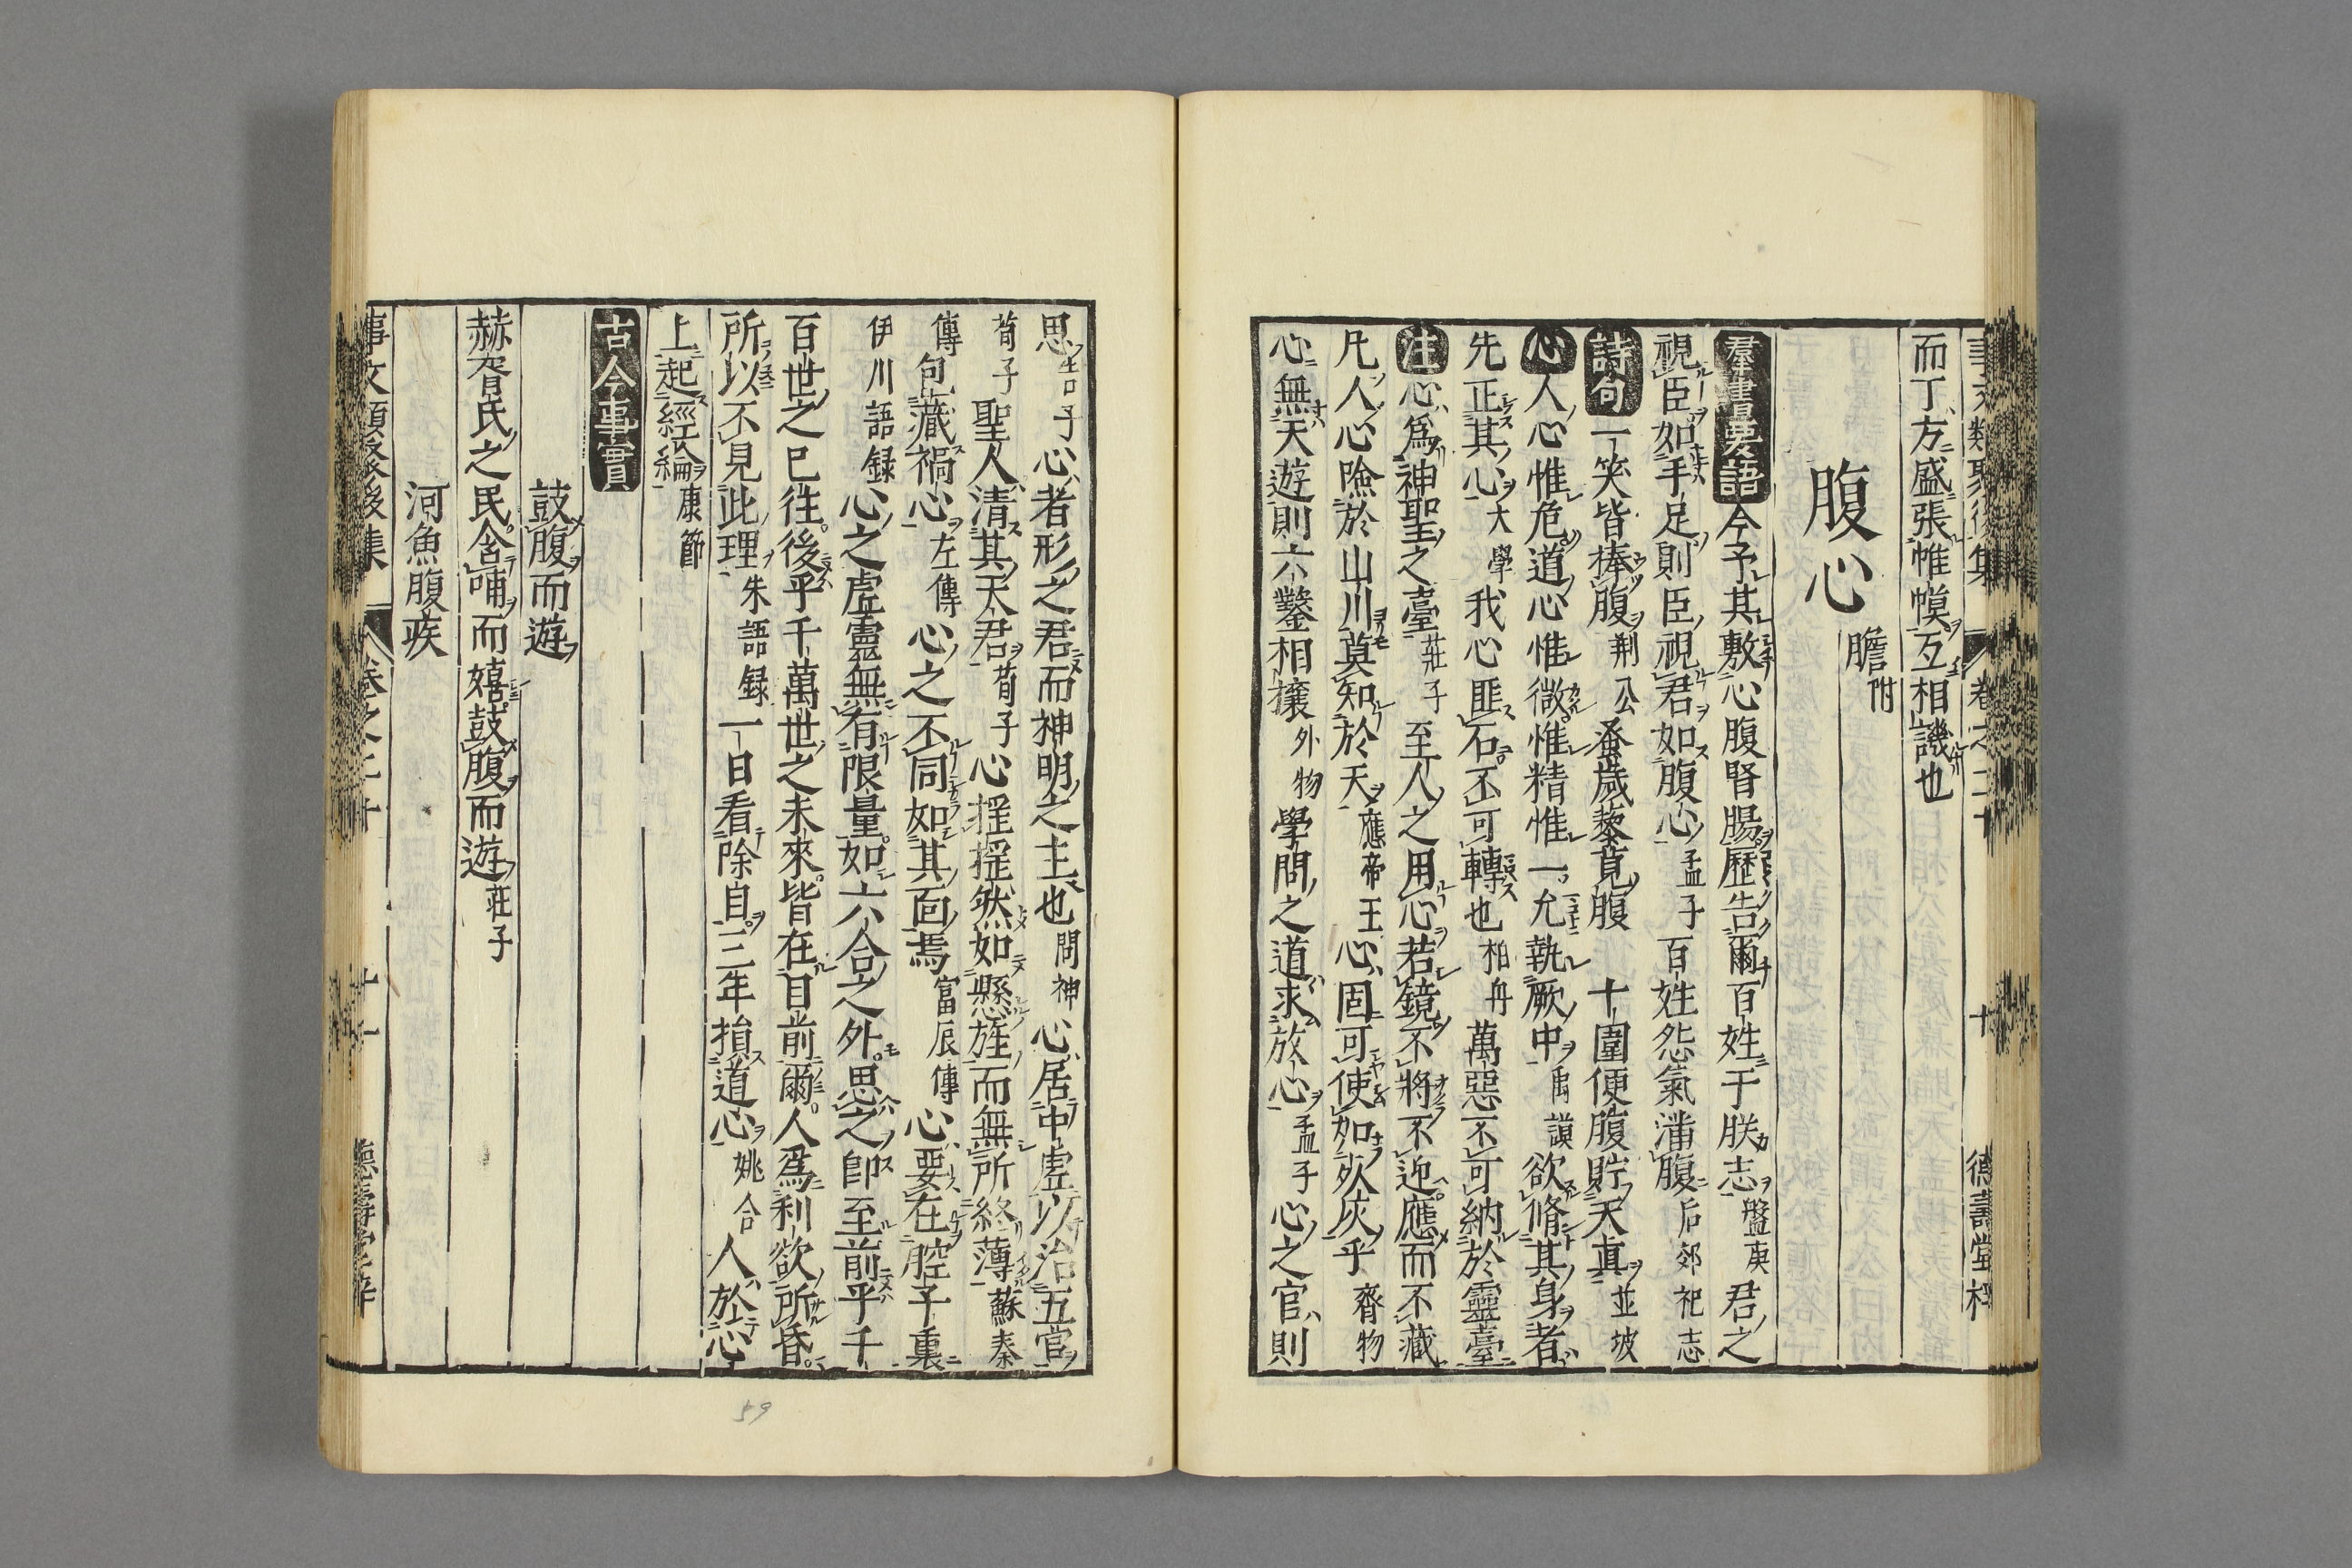 事文類聚後集 卷之二十 十 德壽堂梓
而丁方盛張惟幙互相譏也
腹心 膽附
羣書要語 今予其敷心腹腎腸歷告爾百姓于朕志 盤庚 君之
視臣如手足則臣視君如腹心 孟子 百姓怨氣潘腹 后郊祀志
詩句 一笑皆捧腹 荆公 蚤歲藜莧腹 十圍便腹貯天真 並坡
心 人心惟危道心惟微惟精惟一允執厥中 禹謨 欲脩其身者
先正其心 大學 我心匪石不可轉也 柏舟 萬惡不可納於靈臺
注 心為神聖之臺 莊子 至人之用心若鏡不將不迎應而不藏
凡人心險於山川莫知於天 應帝王 心固可使如死灰乎 齊物
心無天遊則六鑿相攘 外物 學問之道求放心 孟子 心之官則
思 告子 心者形之君而神明之主也 問神 心居中虛以治五官
荀子 聖人清其天君 荀子 心揺揺然如懸旌而無所終薄 蘇秦
傳 包藏禍心 左傳 心之不同如其面焉 富辰傳 心要在腔子裏
伊川語録 心之虛靈無有限量如六合之外思之卽至前乎千
百世之已往後乎千萬世之未來皆在目前爾人為利欲所昏
所以不見此理 朱語録 一日看除自三年損道心 姚合 人於心
上起經綸 康節
古今事實
鼓腹而遊
赫胥氏之民含哺而嬉鼓腹而遊 莊子
河魚腹疾
事文類聚後集 卷之二十 十一 德壽堂梓
59